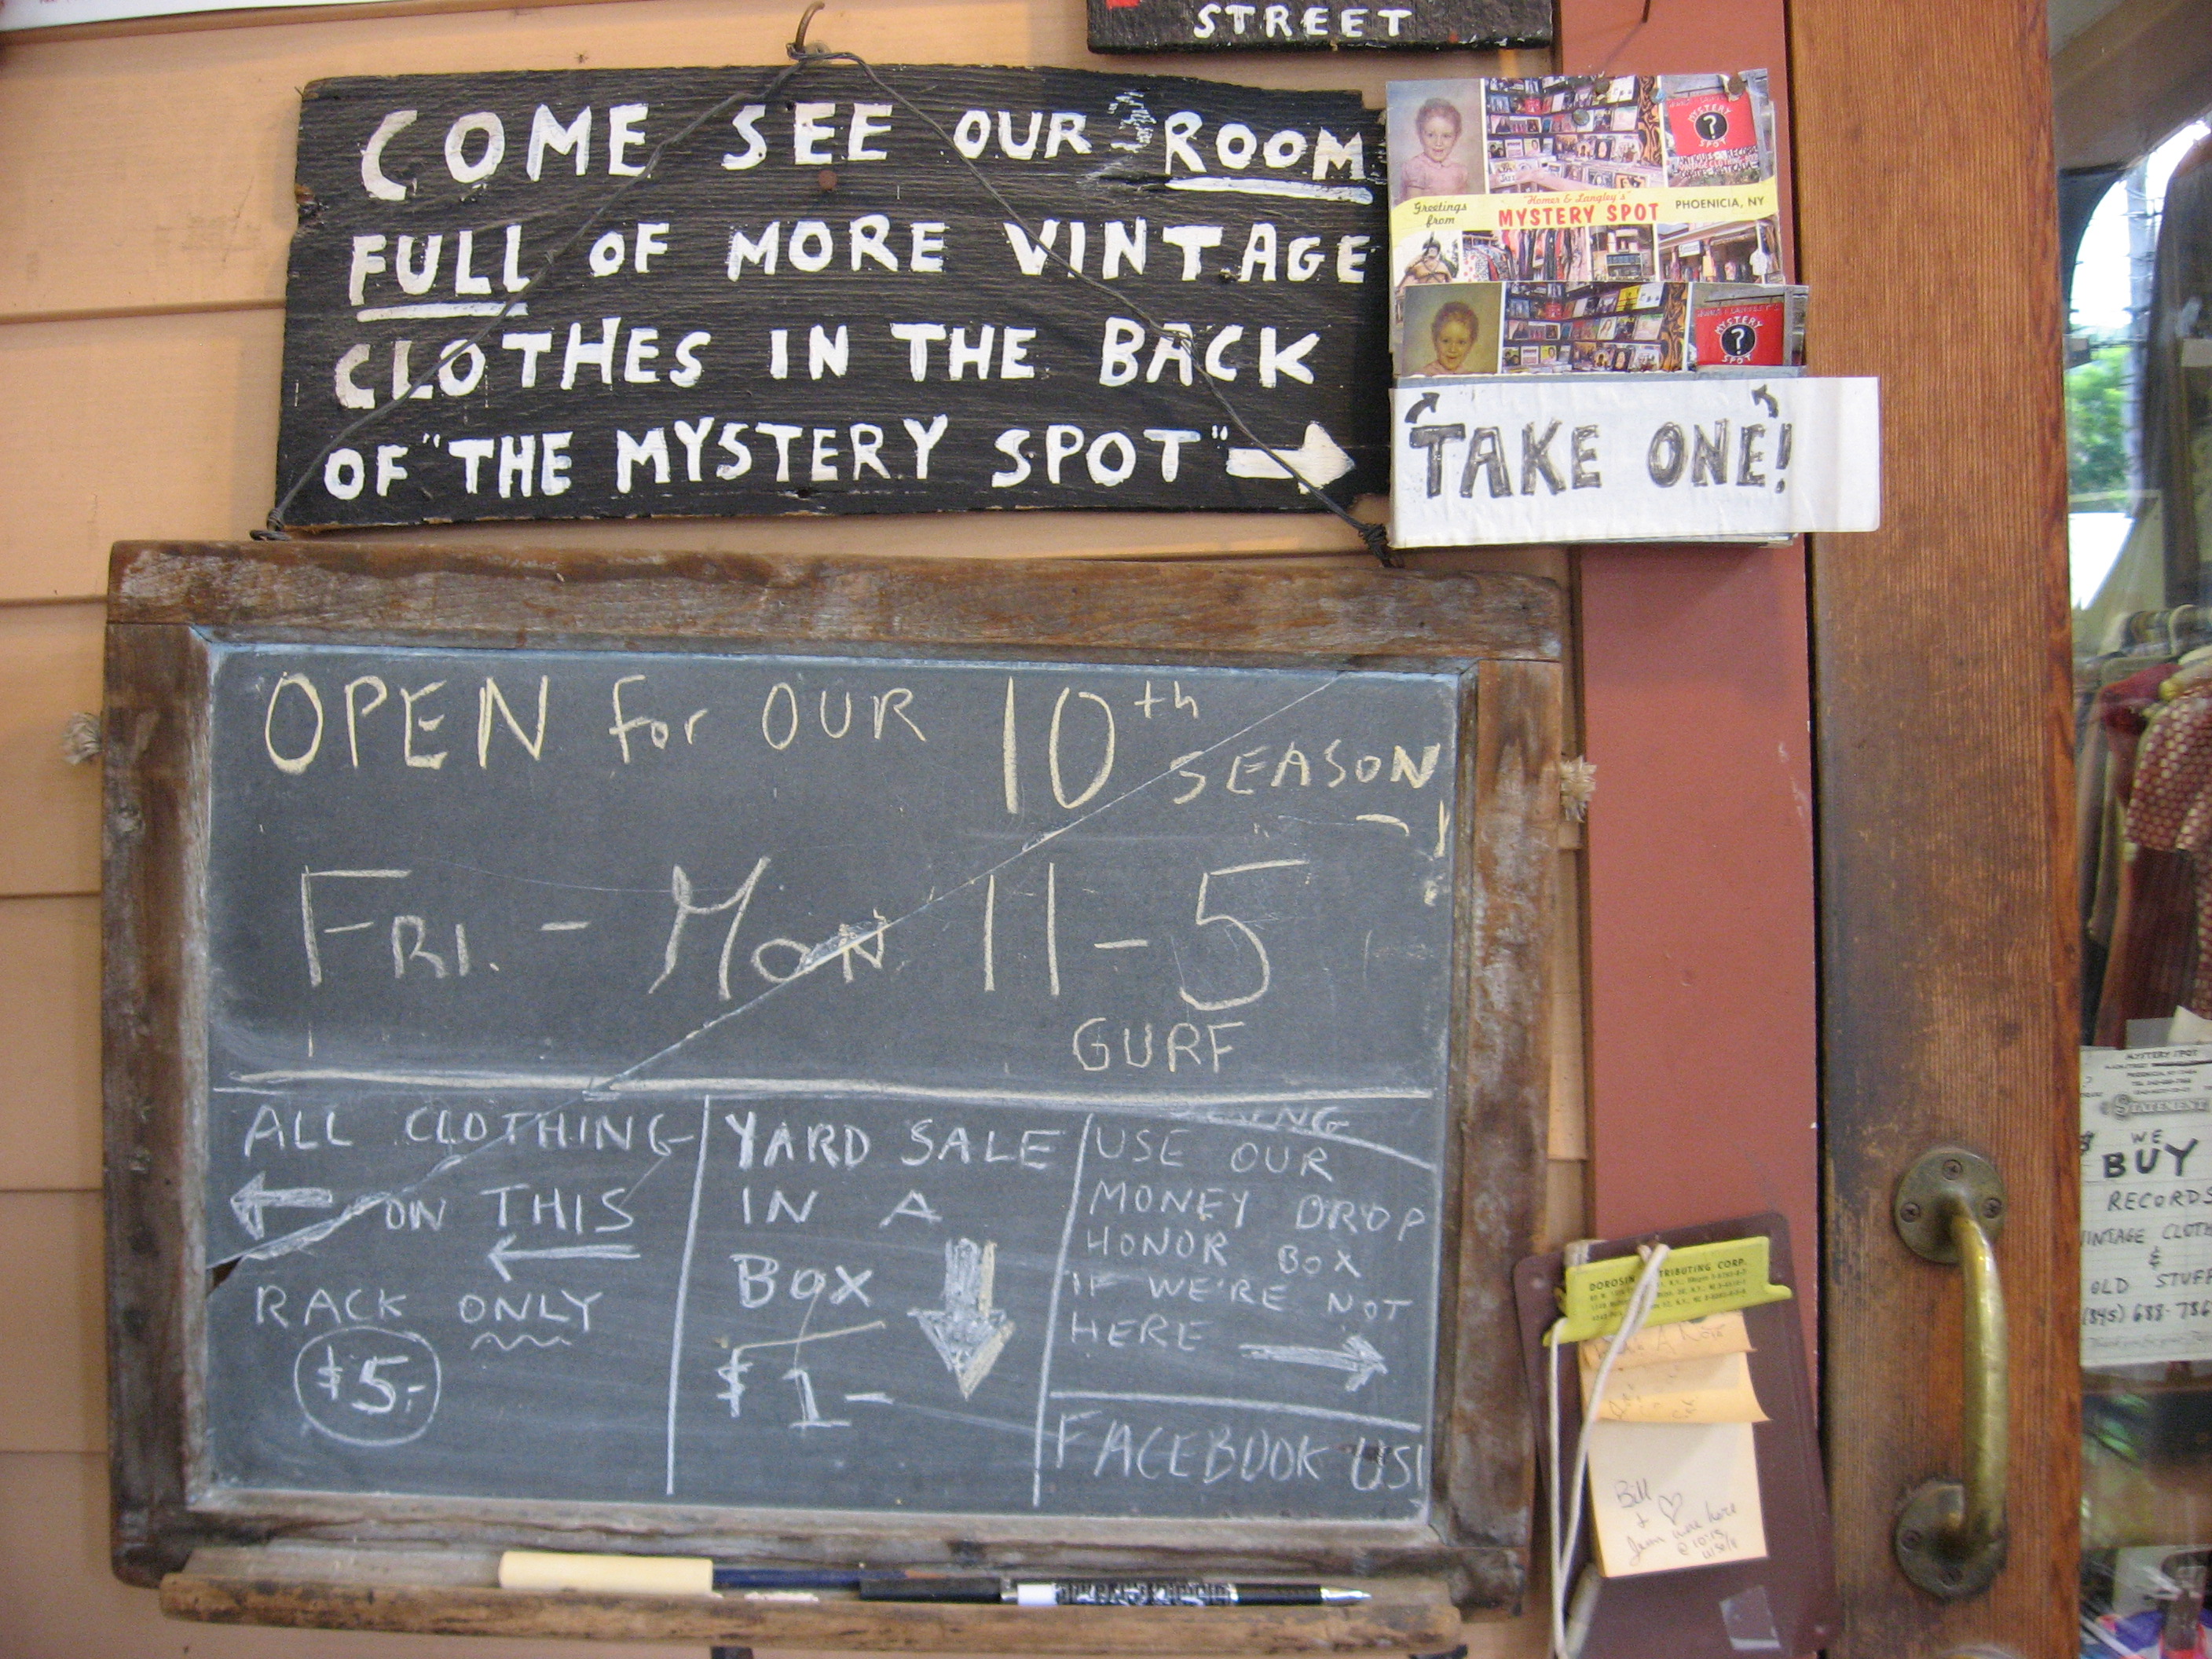 STREET
COME SEE OUR ROOM
FULL OF MORE VINTAGE
CLOTHES IN THE BACK
OF "THE MYSTERY SPOT"
MYSTERY
?
SPOT
Greetings from
Homer & Langley's
MYSTERY SPOT
PHOENICIA, NY
MYSTERY
?
SPOT
TAKE ONE!
OPEN for OUR 10th
SEASON
FRI. - MON 11-5
GURF
ALL CLOTHING
ON THIS
RACK ONLY
$5-
YARD SALE
IN A
BOX
$1-
USE OUR
MONEY DROP
HONOR BOX
IF WE'RE NOT
HERE
FACEBOOK US!
CORP.
Bill
+
Jean were here
MYSTERY SPOT
PHOENICIA
STATEMENT
WE
BUY
RECORDS
VINTAGE
&
OLD STUFF
(845) 688-786